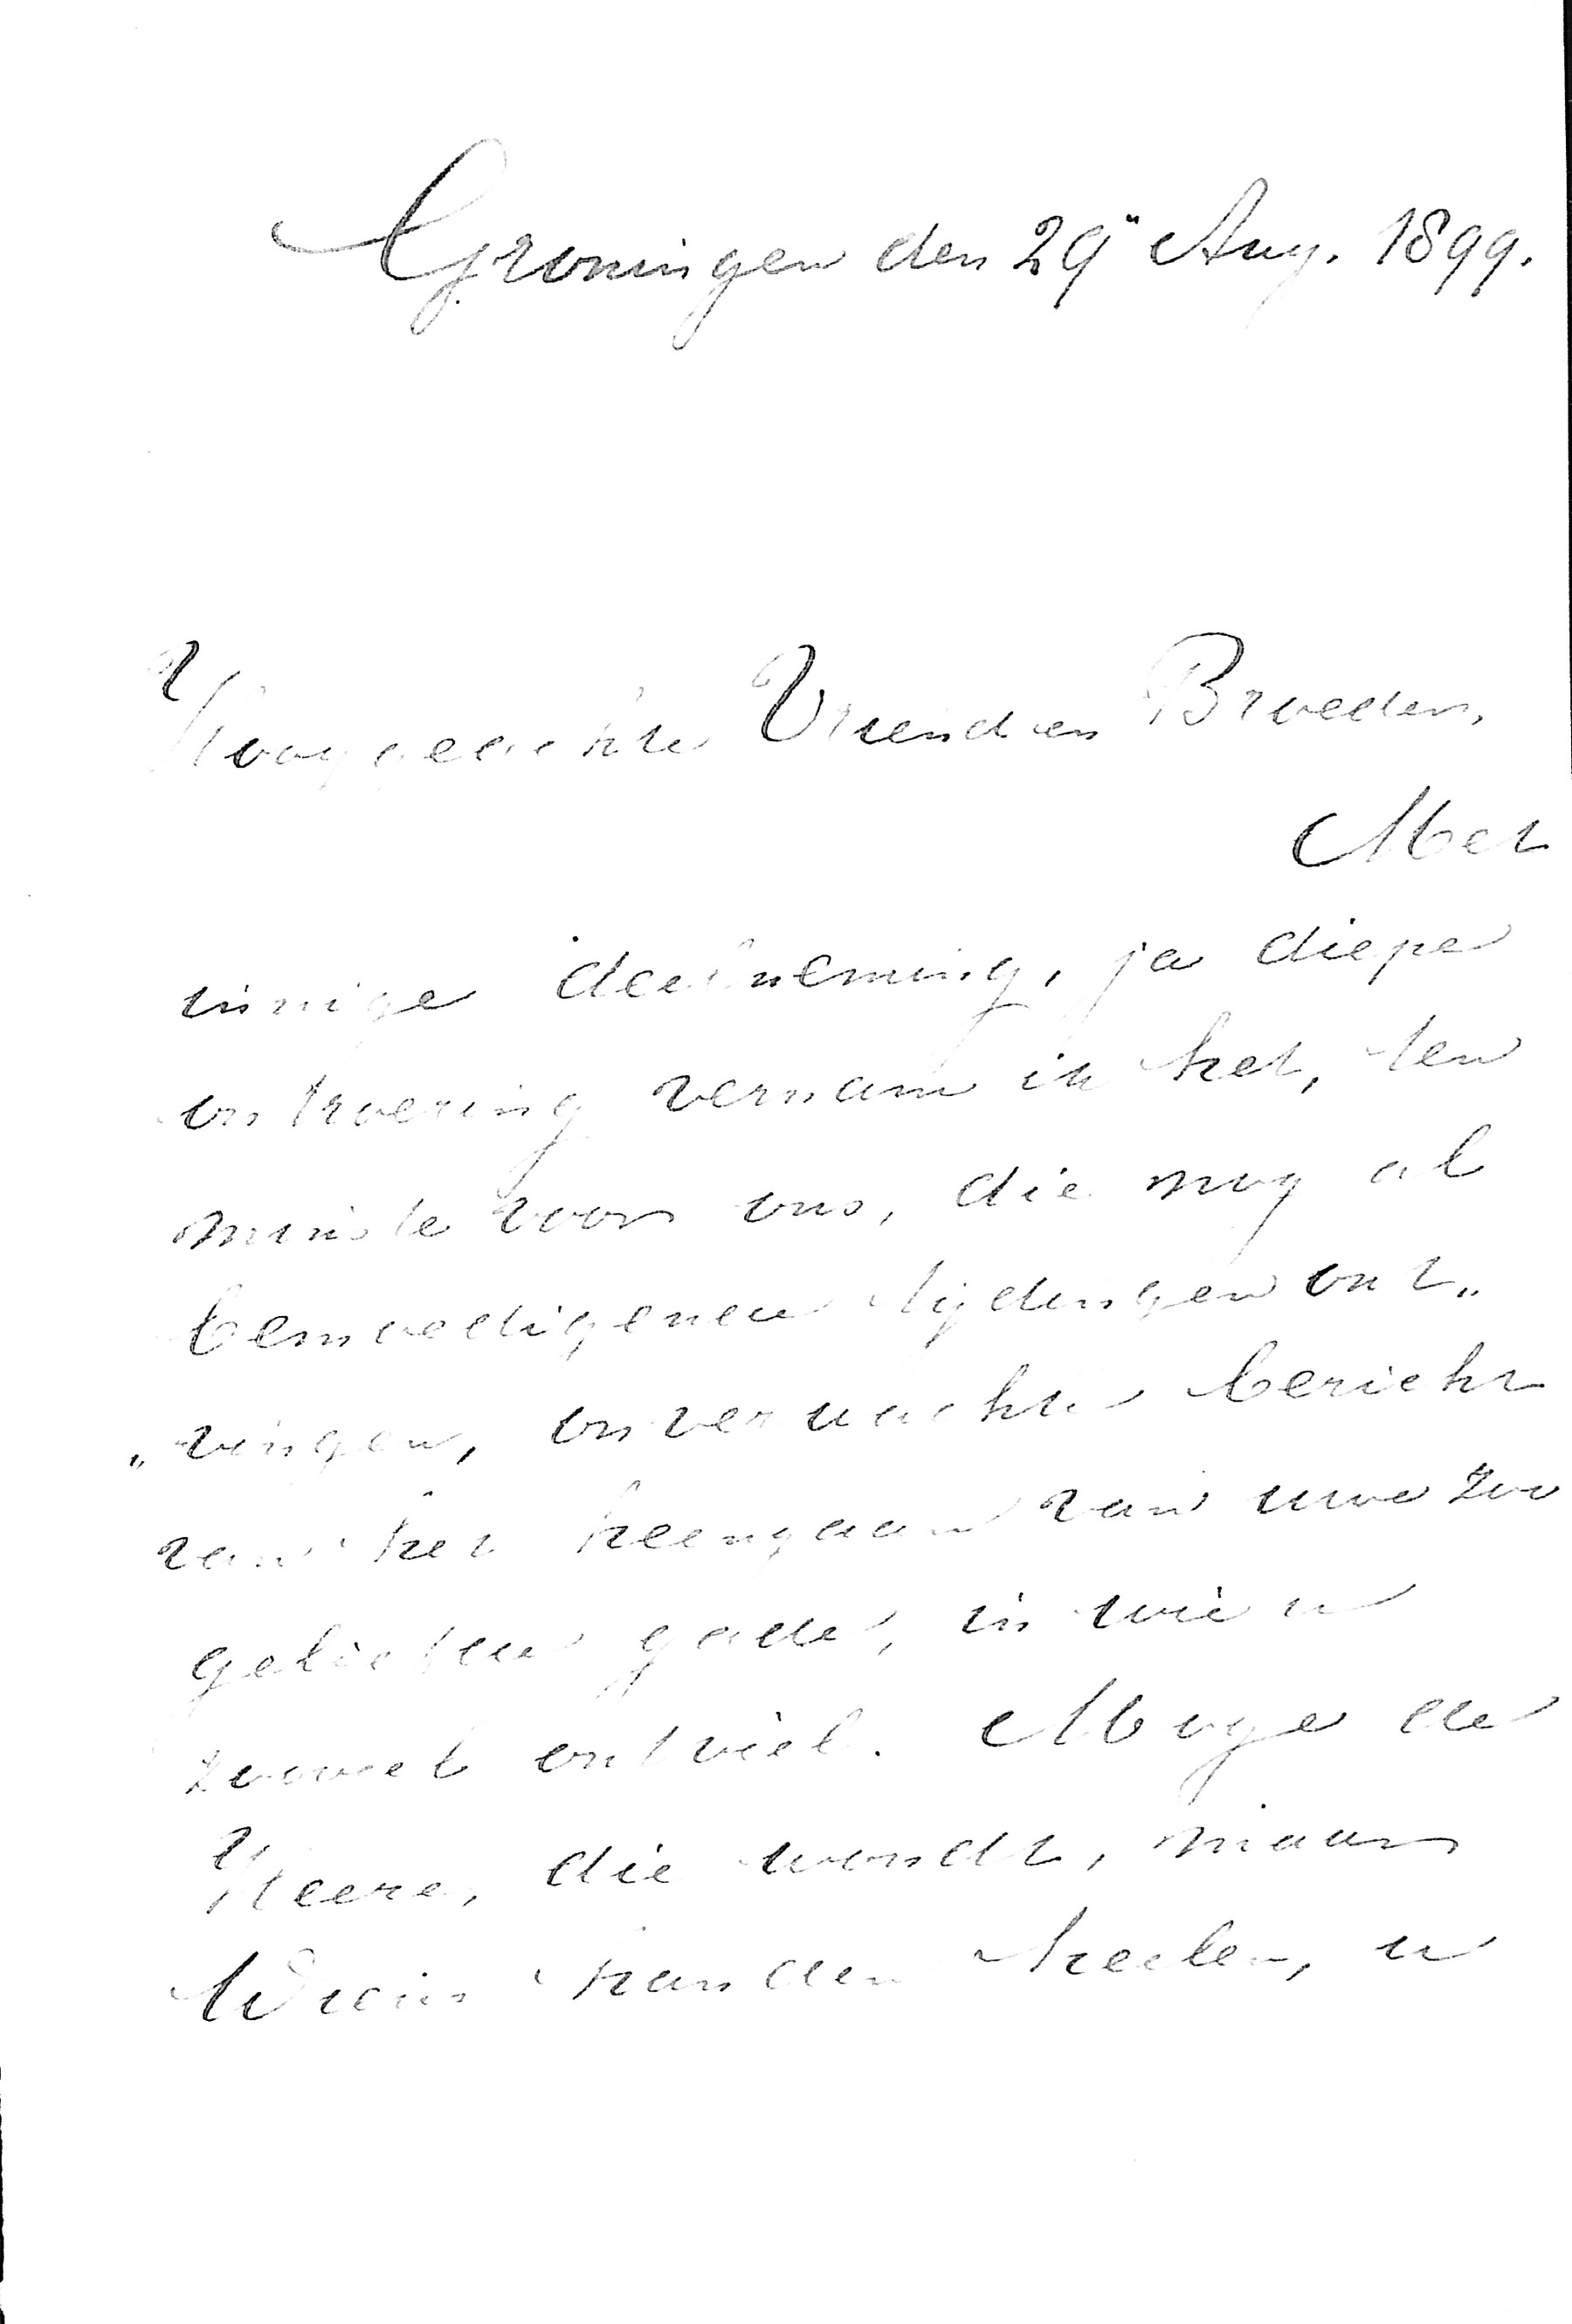 Groningen den 29" Aug. 1899.
Hooggeachte Vriend en Broeder,
Met
innige deelneming, ja diepe
ontroering vernam ik het, ten
minste voor ons, die nog al
bemoedigende tijdingen ont„
„vingen, onverwachte bericht
van het heengaan van uwe zoo
geliefde gade, in wie u
zooveel ontviel. Moge de
Heere, die wondt, maar
Wiens handen heelen, u